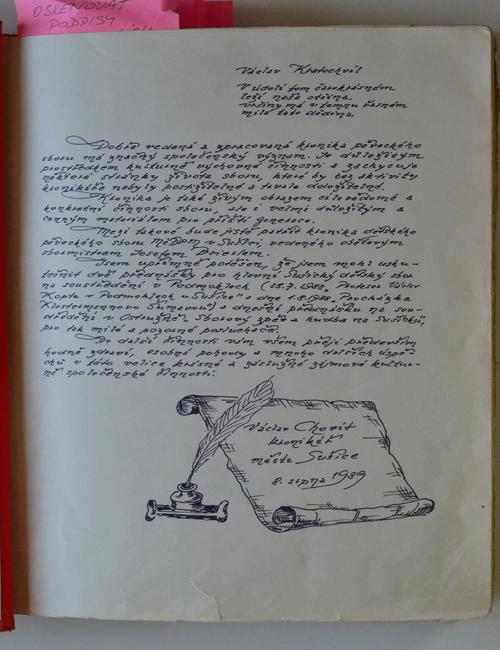 OSKENOVAT
PODPISY
Václav Kratochvíl
V údolí tom čarokrásném
leží naše otčina,
vršiny má v zemnu řasném
milá tato dědina.
Dobře vedená a zpracovaná kronika pěveckého
sboru má značný společenský význam. Je důležitým
prostředkem kulturně výchovné činnosti a zachycuje
některé stránky života sboru, které by bez aktivity
kronikáře nebyly postižitelné a trvale doložitelné.
Kronika je také živým obrazem cílevědomé a
konkrétní činnosti sboru, ale i velmi důležitým a
cenným materiálem pro příští generace.
Mezi takové bude jistě patřit kronika dětského
pěveckého sboru MěDPM v Sušici, vedeného obětavým
sbormistrem Josefem
Jsem upřímně potěšen, že jsem mohl usku-
tečnit dvě přednášky pro hlavní Sušický dětský sbor
na soustředění v Podmoklech (28.7.1988, "Profesor Václav
Kopta v Podmoklech u Sušice" a dne 1.8.1988 "Procházka
Klostermannovou Šumavou) a dnešní přednášku na sou-
středění v Ostružně "Sborový zpěv a hudba na Sušicku,
pro tak milé a pozorné posluchače.
Do další činnosti vám všem přeji především
hodně zdraví, osobní pohody a mnoho dalších úspě-
chů v této velice krásné a záslužné zájmové kultur-
ně společenské činnosti.
Václav Chovít
kronikář
města Sušice
8. srpna 1989